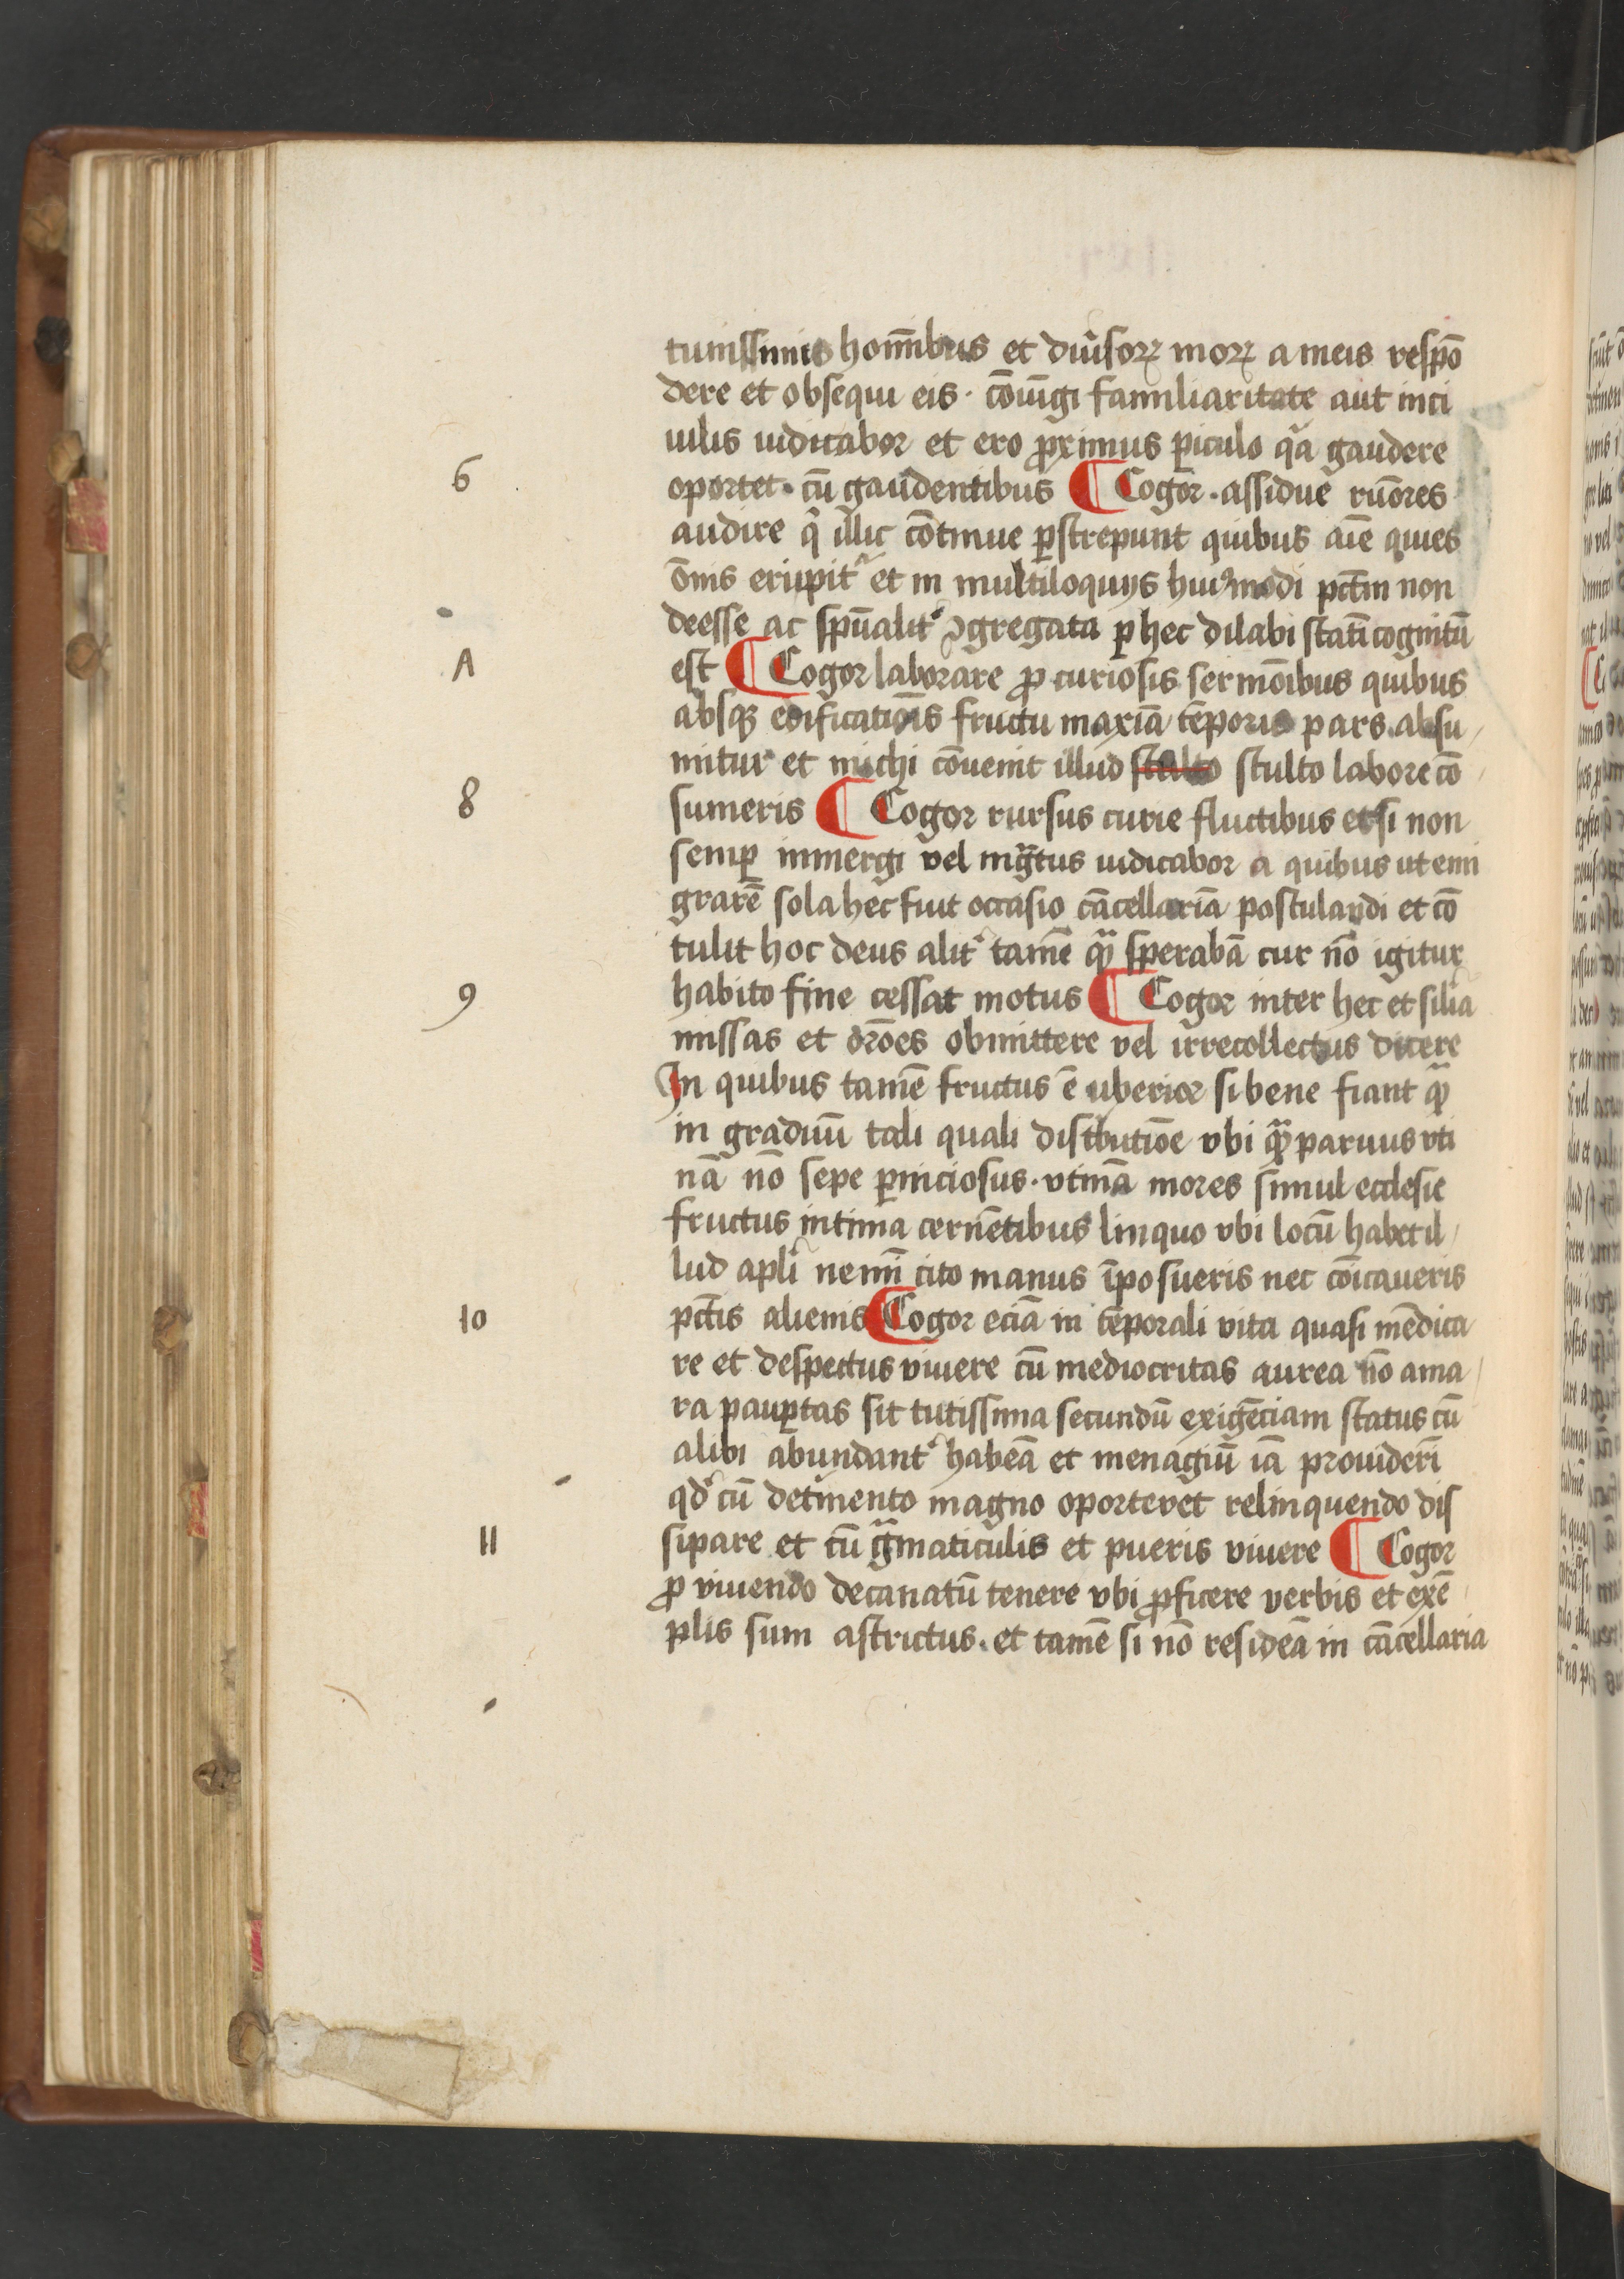 tunissimis homībus et diu̾soꝝ moꝝ a meis respō
dere et obsequi eis · cōiūgi familiaritate aut inci
uilis iudicabor et ero ꝓximus ꝑiculo qͣ gaudere
6 oportet · cū gaudentibus ¶ Cogor · assidue rūores
audire q̄ illic cōtinue ꝑstrepunt quibus aīe quies
ōnis eripitᷣ et in multiloquijs huiꝰmodi pctm̄ non
deesse ac spūalitᷣ ꝯgregata ꝑ hec dilabi statī cognitū
Λ est ¶ Cogor laborare ꝓ curiosis sermōibus quibus
absqꝫ edificatiōis fructu maxīa tēporis pars absu
mitur et michi cōuenit illud stulto stulto labore cō
8 sumeris ¶ Cogor rursus curie fluctibus etsi non
semꝑ immergi vel īgͣtus iudicabor a quibus ut emi
grarē sola hec fuit occasio cācellariā postulandi et cō
tulit hoc deus alitᷣ tamē qͣꝫ sperabā cur nō igitur
9 habito fine cessat motus ¶ Cogor inter hec et sīlia
missas et orōes obmittere vel irrecollectus dicere
In quibus tamē fructus ē uberior si bene fiant qͣꝫ
in graduū tali quali distⁱbutiōe vbi qͣꝫ paruus vti
nā nō sepe ꝑniciosus · vtinā mores simul ecclesie
fructus intima cernētibus linquo vbi locū habet il
lud apl̄i nemī cito manus īposueris nec cōicaueris
10 pctīs alienis ¶ Cogor eciā in tēporali vita quasi mēdica
re et despectus viuere cū mediocritas aurea nō ama
ra pauꝑtas sit tutissima secundū exigēciam status cū
alibi abundantᷣ habeā et menagiū iā prouiderī
qd̾ cū det̾mento magno oporteret relinquendo dis
11 sipare et cū gͣmaticulis et pueris viuere ¶ Cogor
ꝓ viuendo decanatū tenere vbi ꝓficere verbis et exē
plis sum astrictus · et tamē si nō resideā in cācellaria